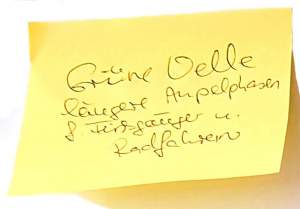 Grüne Welle
längere Ampelphasen
f Fußgänger u.
Radfahrern